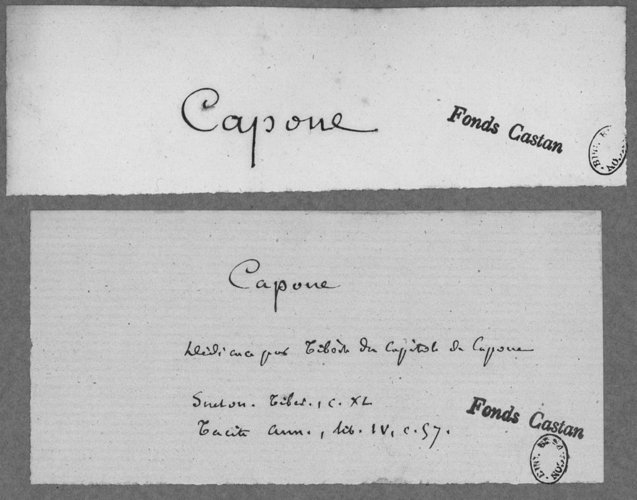 Capoue
Fonds Castan
Capoue
Dédicace par Tibère du Capitole de Capoue
Sueton. Tiber., c. XL
Tacite Ann., lib. IV, c. 57.
Fonds Castan